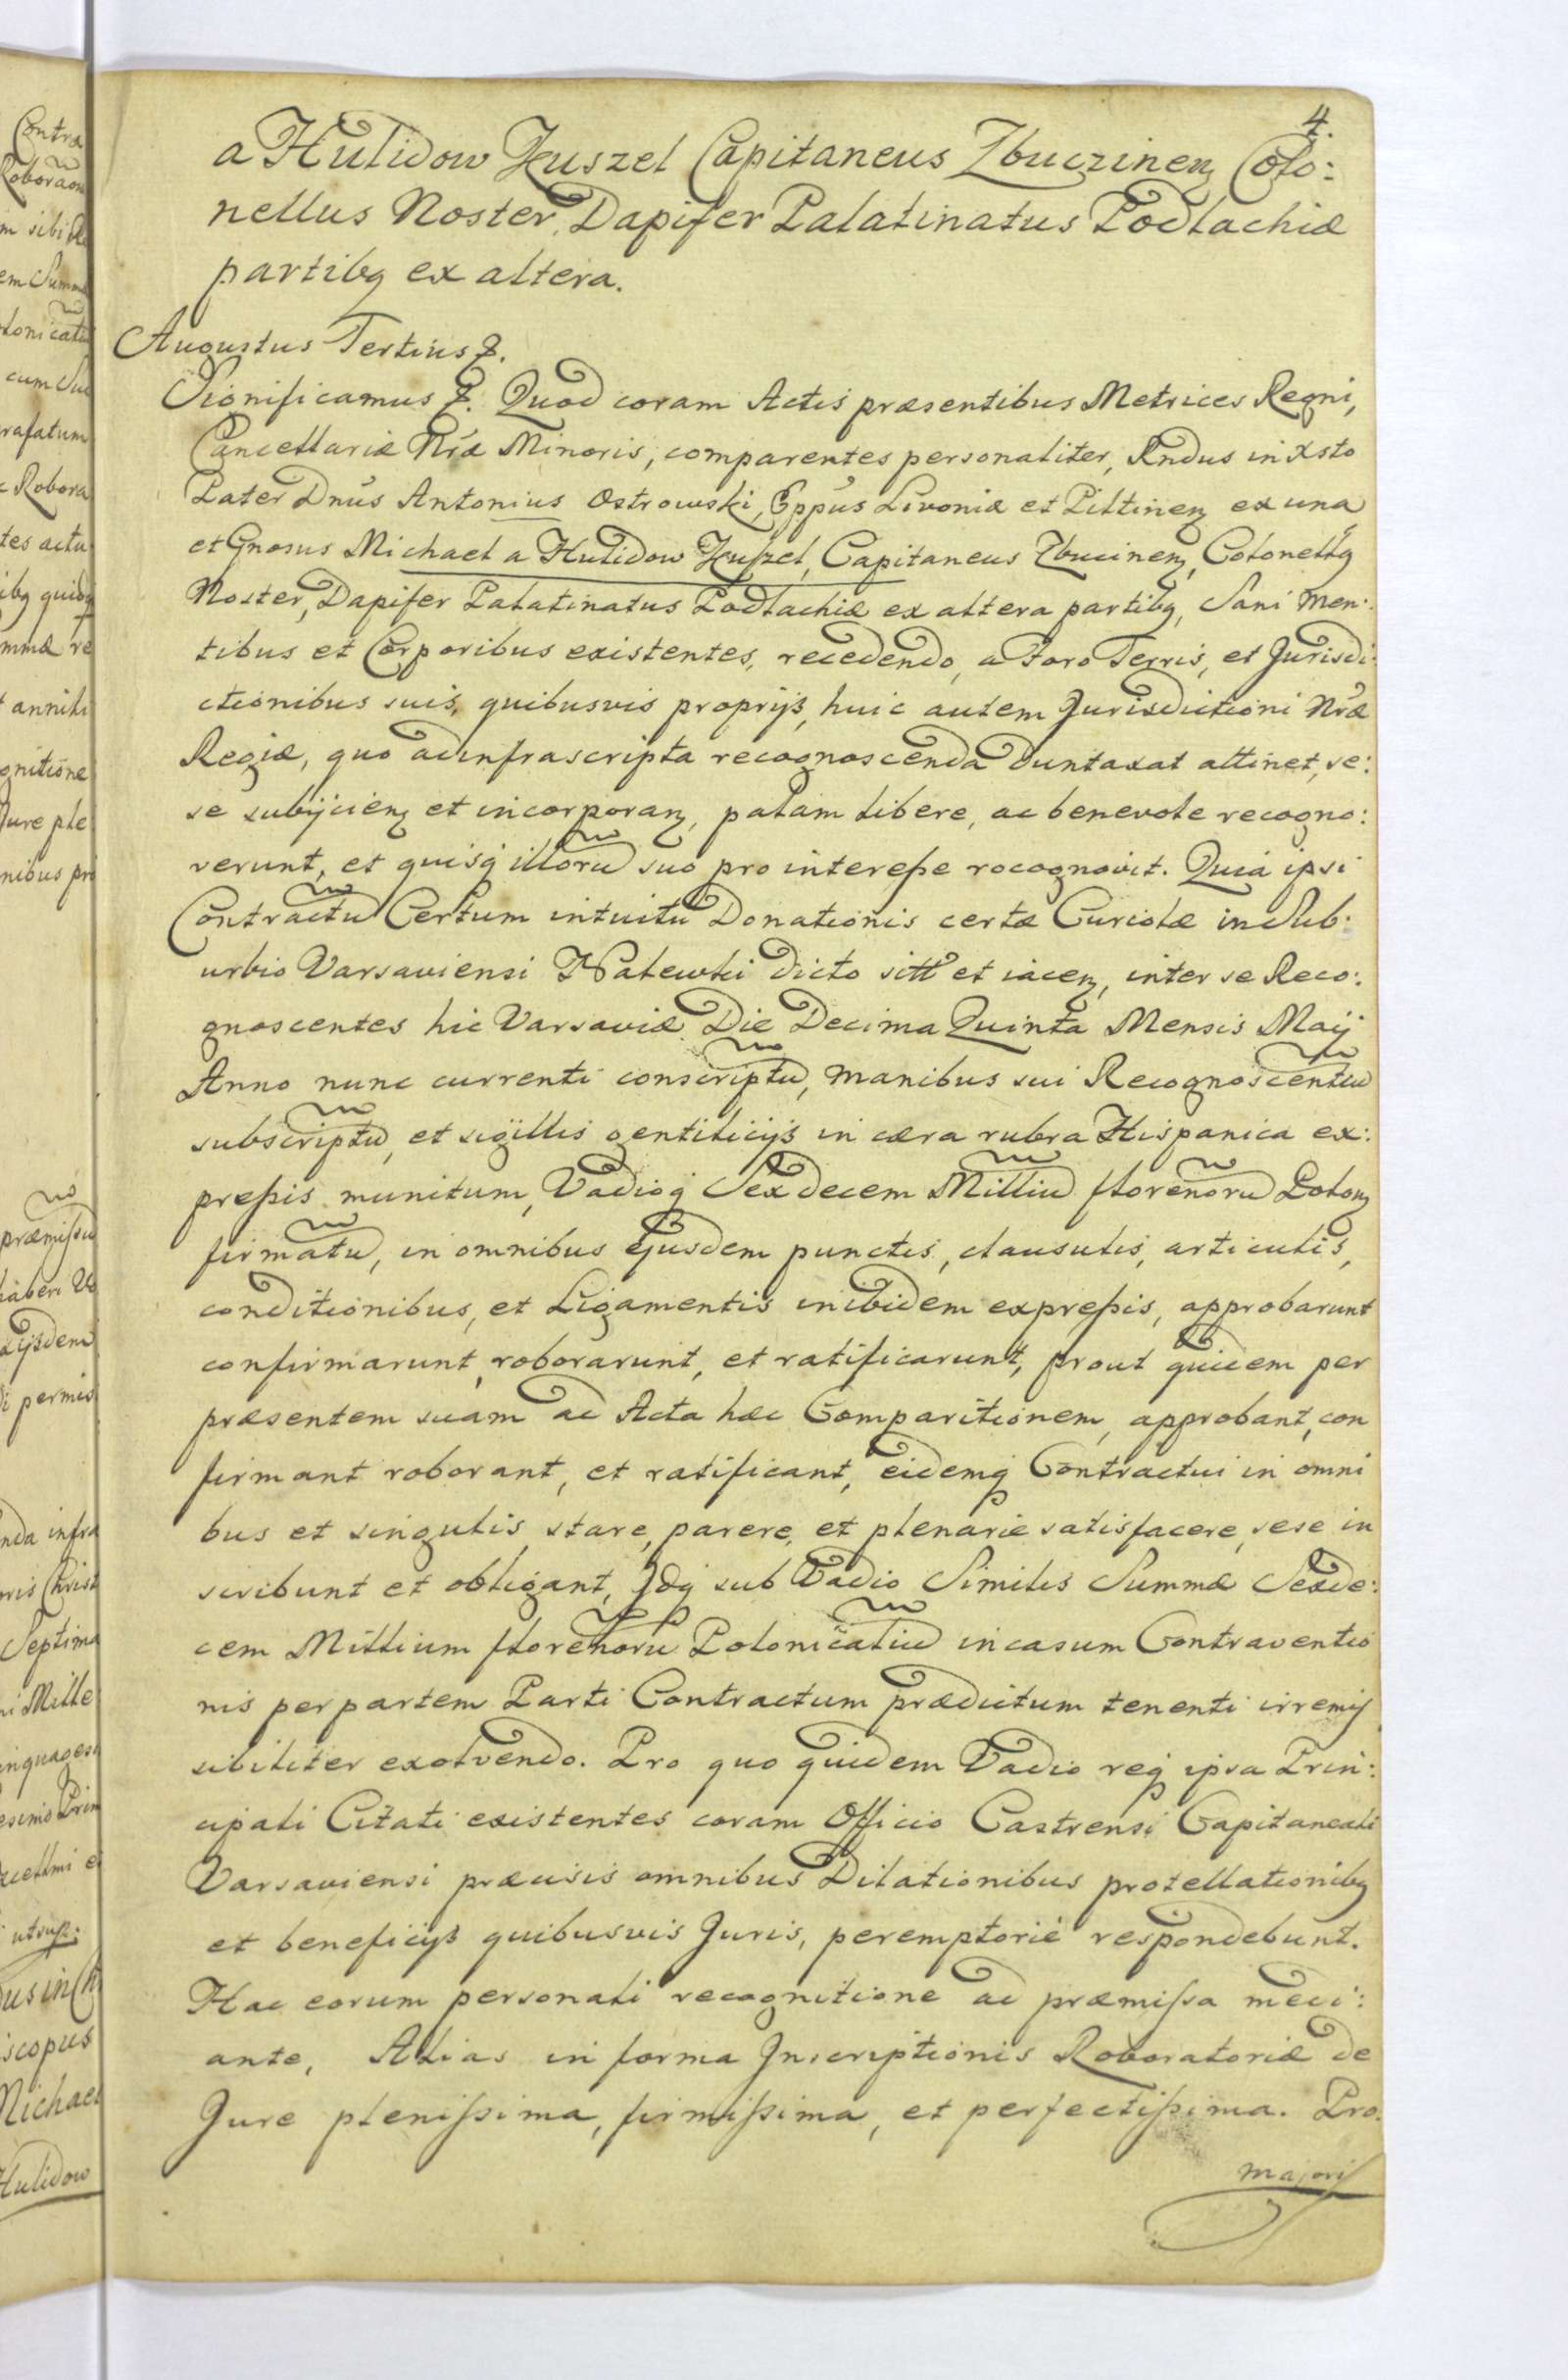 4.
a Hulidow Kuszel Capitaneus Zbuczinen Colo:
nellus Noster, Dapifer Palatinatus Podlachiæ
partibq ex altera.
Augustus Tertius &.
Significamus &. Quod coram Actis præsentibus Metrices Regni,
Cancellariæ Nræ Minoris, comparentes personaliter, Rndus in Xsto
Pater Dnus Antonius Ostrowski, Eppus Livoniæ et Piltinen ex una
et Gnosus Michael a Hulidow Kuszel, Capitaneus Zbucinen, Colonellq
Noster, Dapifer Palatinatus Podlachiæ ex altera partibq, Sani men:
tibus et Corporibus existentes, recedendo, a Foro Terris, et Jurisdi:
ctionibus suis, quibusvis proprijs, huic autem Jurisdictioni Nræ
Regiæ, quo ad infrascripta recognoscenda duntaxat attinet, se:
se subijcien et incorporan, palam libere, ac benevole recogno:
verunt, et quisq illoru suo pro interesse rocognovit. Quia ipsi
Contractu Certum intuitu Donationis certæ Curiolæ in Sub:
urbio Varsaviensi Nalewki dicto sitt et iacen, inter se Reco:
gnoscentes hic Varsaviæ Die Decima Quinta Mensis Maij
Anno nunc currenti conscriptu, manibus sui Recognoscentiu
subscriptu, et sigillis gentilicijs in cæra rubra Hispanica ex:
pressis munitum, Vadioq Sexdecem Milliu florenoru Polon
firmatu, in omnibus ejusdem punctis, clausulis, articulis,
conditionibus, et Ligamentis inibidem expressis, approbarunt
confirmarunt, roborarunt, et ratificarunt, prout quidem per
præsentem suam ad Acta hæc Comparitionem, approbant, con
firmant roborant, et ratificant, eidemq Contractui in omni
bus et singulis, stare, parere, et plenarie satisfacere, sese in
scribunt et obligant, Idq sub Vadio Similis Summæ Sexde:
cem Millium florenoru Polonicaliu in casum Contraventio
nis per partem Parti Contractum prædictum tenenti irremis
sibiliter exolvendo. Pro quo quidem Vadio req ipsa Prin:
cipali Citati existentes coram Officio Castrensi Capitaneali
Varsaviensi præcisis omnibus Dilationibus protellationibq
et beneficijs quibusvis Juris, peremptorie respondebunt.
Hac eorum personali recognitione ad præmissa medi:
ante, Alias in forma Inscriptionis Roboratoriæ de
Jure plenissima, firmissima, et perfectissima. Pro
majori